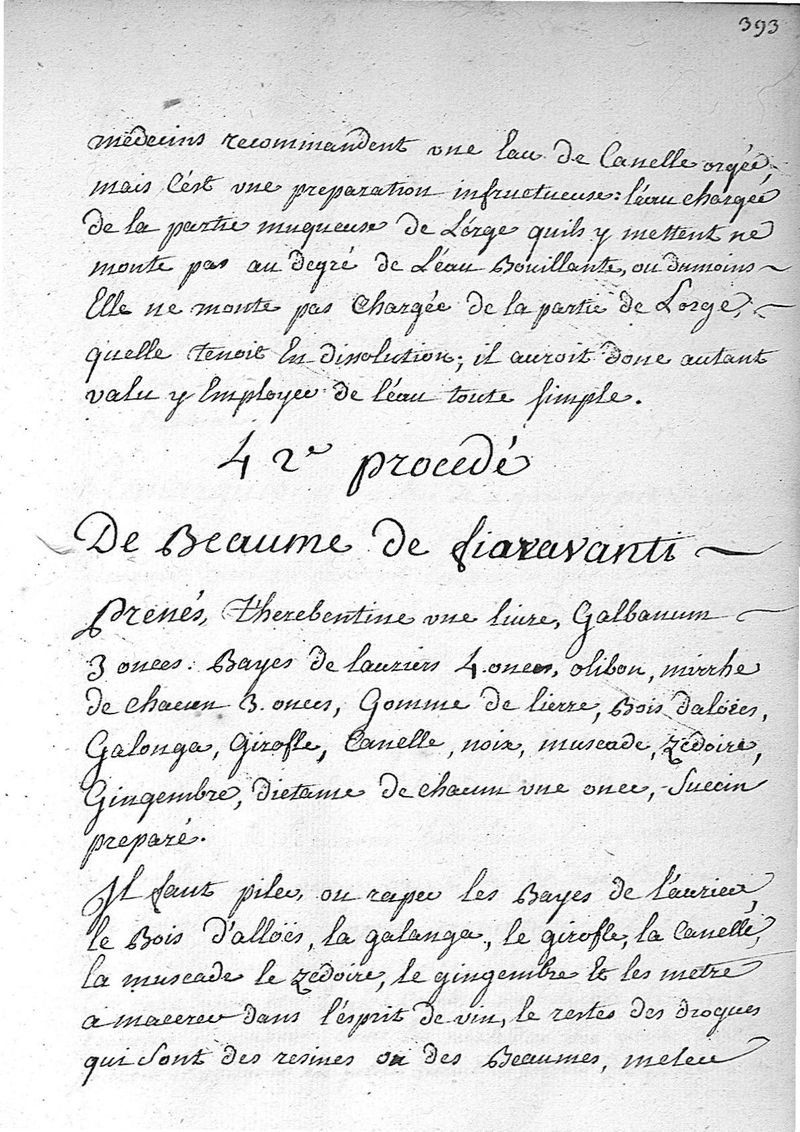 393
médecins recommandent une Eau de Canelle orgée,
mais C'est une preparation infructueuse: l'eau chargée
de la partie muqueuse de L'orge quils y mettent ne
monte pas au degré de L'éau Bouillante, ou dumoins
Elle ne monte pas Chargée de la partie de Lorge,
quelle tenoit En dissolution; il auroit donc autant
valu y Employer de l'éau toute simple.
42e procedé
De Beaume de fiaravanti
Prenés, therebentine une livre, Galbanum
3 onces. Bayes de lauriers 4 onces, olibon, mirrhe
de chacun 3 onces, Gomme de lierre, Bois d'aloës,
Galonga, Girofle, Canelle, noix, muscade, Zédoire,
Gingembre, dictame de chacun une once, Succin
preparé.
Il faut piler, ou raper les Bayes de l'aurier,
le Bois d'alloës, la galanga, le girofle, la Canelle,
la muscade le zédoire, le gingembre Et les metre
a macerer dans l'esprit de vin, le restes des drogues
qui sont des resines ou des Beaumes, meleé